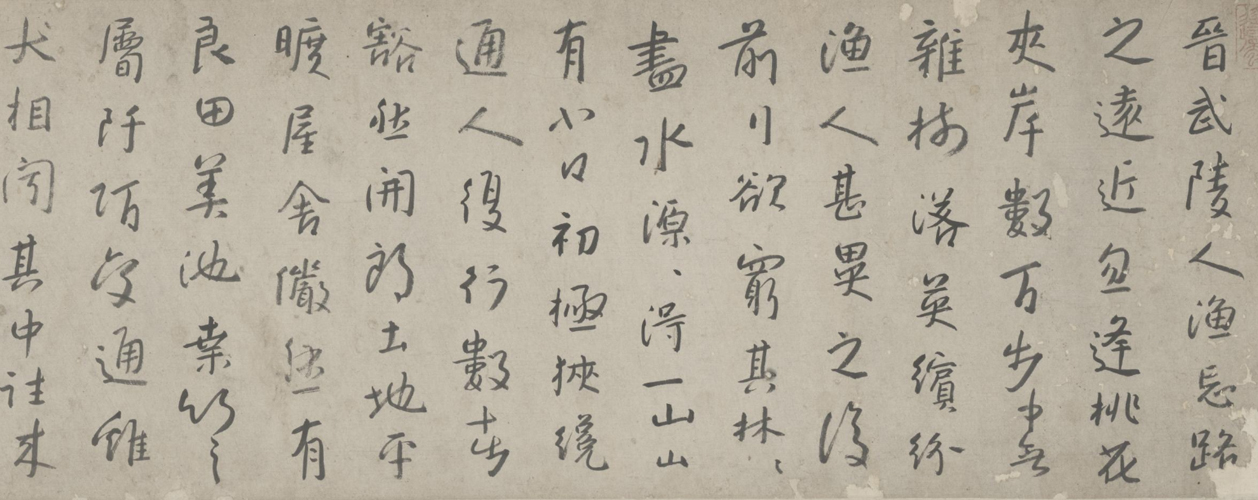 晉武陵人漁忘路
之遠近忽逢桃花
夾岸數百步中無
雜樹落英繽紛
漁人甚異之復
前行欲窮其林、
盡水源、得一山山
有小口初極狹纔
通人復行數十步
豁然開朗土地平
曠屋舍儼然有
良田美池桑竹之
阡陌交通雞
犬相聞其中往來